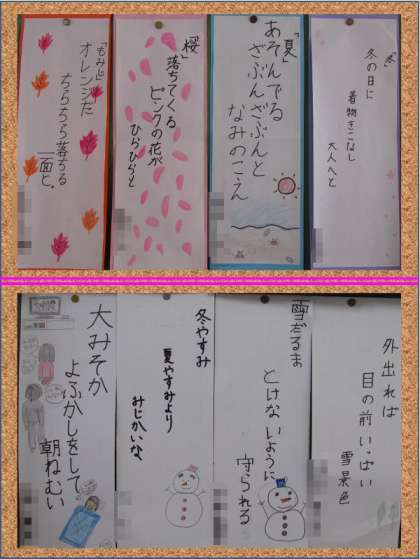 「冬」
冬の日に
着物きこなし
大人へと
「夏」
あそんでる
ざぶんざぶんと
なみのこえ
「桜」
落ちてくる
ピンクの花が
ひらひらと
「もみじ」
オレンジだ
ちらちら落ちる
一面と。
外出れば
目の前いっぱい
雪景色
雪だるま
とけないように
守られる
冬やすみ
夏やすみより
みじかいな
大みそか
よふかしをして
朝ねむい